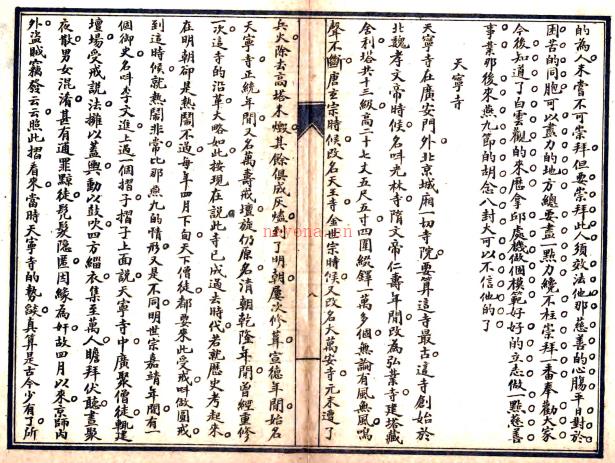 的為人未嘗不可崇拜但要崇拜此人須效法他那慈善的心腸平日對於
困苦的同胞可以盡力的地方總要盡一點力纔不枉崇拜一番奉勸大家
今後知道了白雲觀的來歷拿邱處機做個模範好好的立志做一點慈善
事業那後來燕九節的胡念八封大可以不信他的了
天寧寺
天寧寺在廣安門外北京城廂一切寺院要算這寺最古這寺創始於
北魏孝文帝時候名叫光林寺隋文帝仁壽年間改為弘業寺建塔藏
舍利塔共十三級高二十七丈五尺五寸四圍綴鐸一萬多個無論有風無風鳴
聲不斷唐玄宗時候改名天王寺金世宗時候又改名大萬安寺元末遭了
八
兵火除去高塔未燬其餘俱成灰燼到了明朝屢次修葺宣德年間始名
天寧寺正統年間又名萬壽戒壇旋仍原名清朝乾隆年間曾經重修
一次這寺的沿革大略如此按現在說此寺已成過去時代若就歷史考起來
在明朝卻是熱鬧不過每年四月下旬天下僧徒都要來此受戒叫做圓戒
到這時候就熱鬧非常比那燕九的情形又是不同明世宗嘉靖年間有一
個御史名叫李文進上過一個摺子摺子上面說天寧寺中廣聚僧徒輒建
壇場受戒說法擁以蓋輿動以鼓吹四方緇衣集至萬人瞻拜伏聽晝聚
夜散男女混淆甚有逋罪黥徒髡髮隱匿因緣為奸故四月以來京師內
外盜賊竊發云云照此摺看來當時天寧寺的勢燄真算是古今少有了所
neyona.com